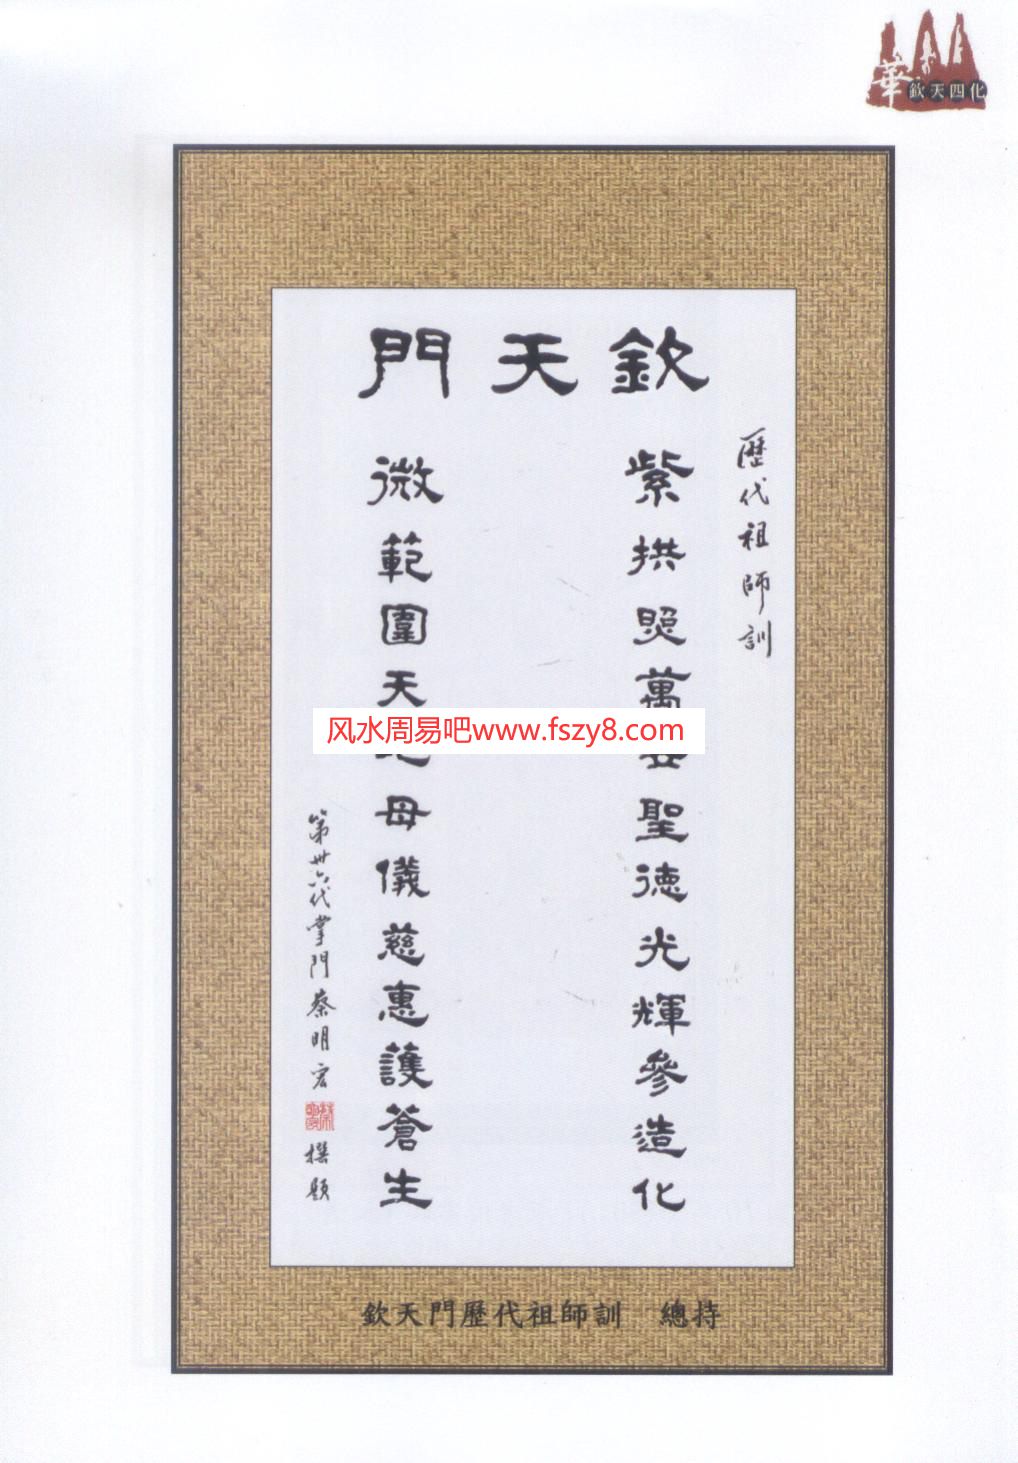 華
欽天四化
欽天門
歷代祖師訓
紫拱照萬聖德光輝參造化
微範圍天母儀慈惠護蒼生
第卅六代掌門蔡明宏撰題
风水周易吧www.fszy8.com
欽天門歷代祖師訓 總持